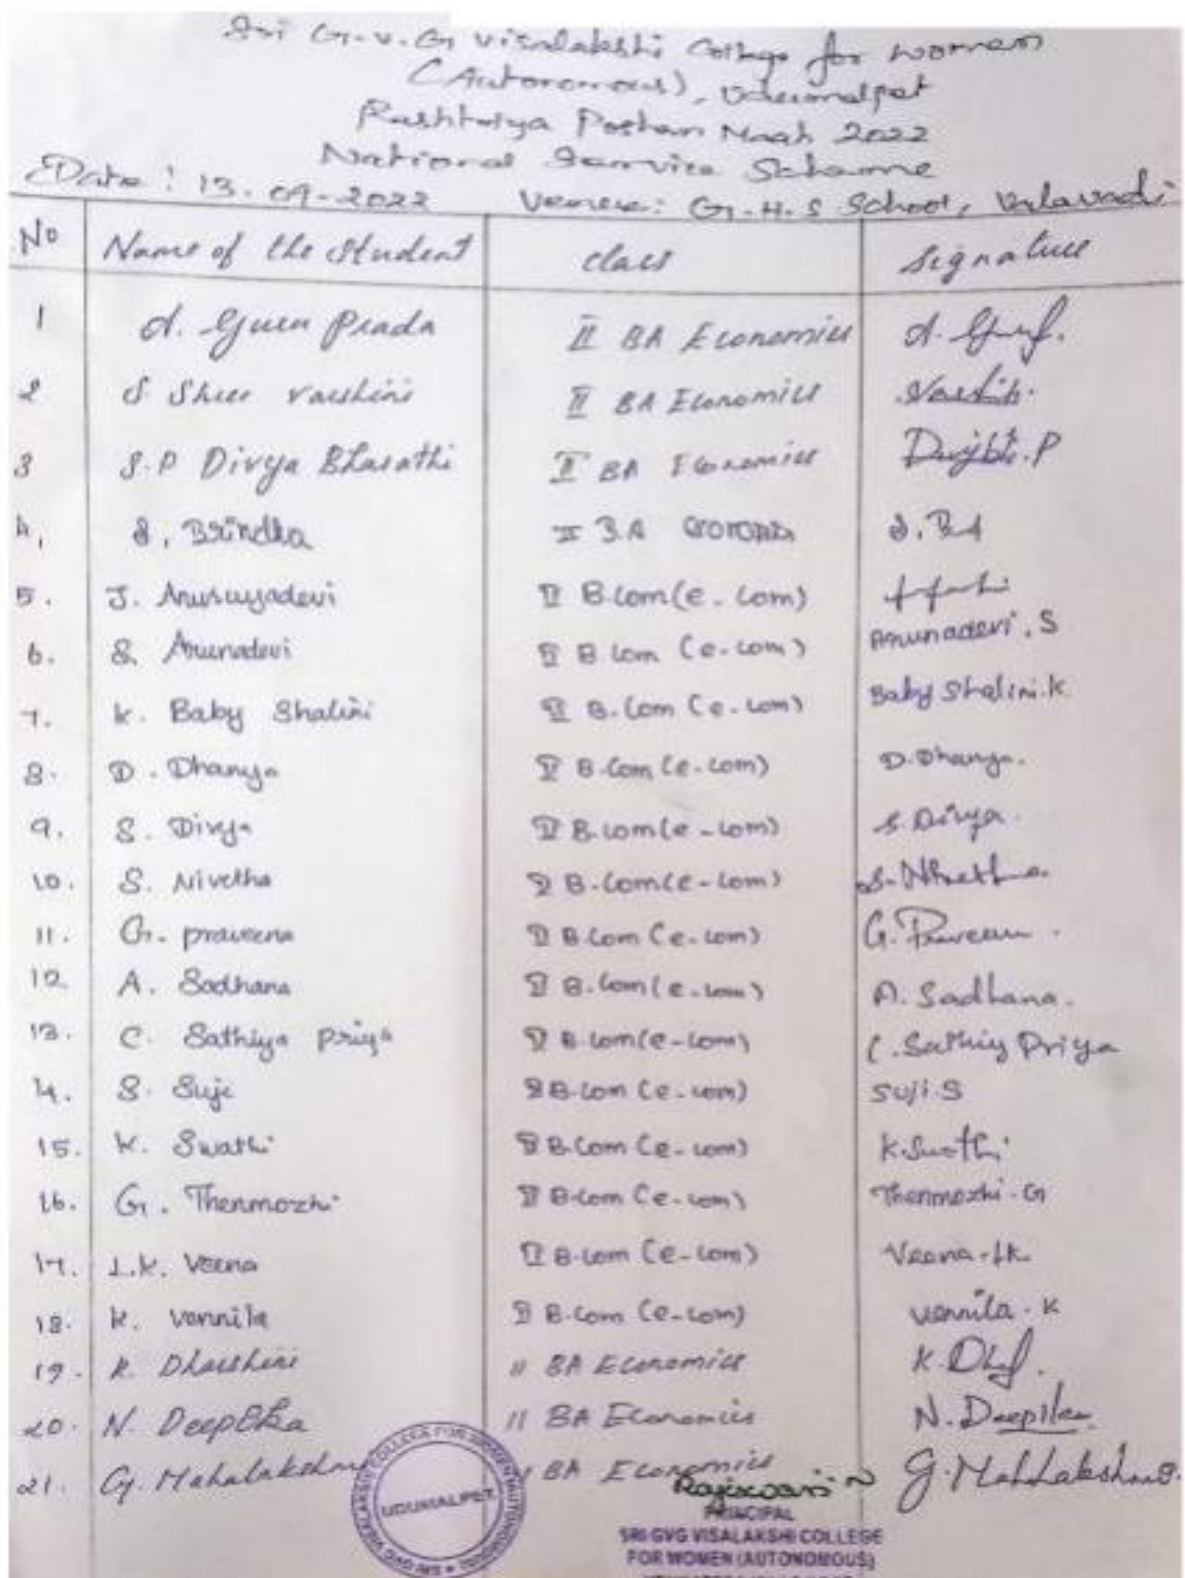 Sri G.V.G Visalakshi College for Women
(Autonomous), Udumalpet
Rashtriya Poshan Maah 2022
National Service Scheme
Date: 13.09-2022 Venue: G.H.S School, Valavadi
No Name of the Student class Signature
1 A. Guru Prada II BA Economics
2 S. Shree Varshini II BA Economics
3 S.P Divya Bharathi II BA Economics
4, S. Brindha II B.A
5. J. Anusuyadevi II B.Com(e.com)
6. S. Arunadevi II B.Com (e.com) Arunadevi.S
7. K. Baby Shalini II B.Com (e.com) Baby Shalini.K
8. D. Dhanya II B.Com (e.com) D.Dhanya.
9. S. Divya II B.Com(e-com) S.Divya.
10. S. Nivetha II B.Com(e-com) S.Nivetha
11. G. praveena II B.Com (e.com) G.Praveena.
12 A. Sadhana II B.Com(e.com) A. Sadhana.
13. C. Sathiya Priya II B.com(e-com) C. Sathiy Priya
14. S. Suji II B.Com (e.com) Suji.S
15. K. Swathi II B.Com (e-com) K.Swathi
16. G. Thenmozhi II B.Com (e.com) Thenmozhi.G
17. L.K. Veena II B.Com (e-com) Veena.LK
18. K. Vennila II B.Com (e-com) Vennila.K
19. K. Dharshini II BA Economics
20. N. Deepika II BA Economics N. Deepika
21. G. Mahalakshmi II BA Economics G. Mahalakshmi
SRI GVG VISALAKSHI COLLEGE FOR WOMEN (AUTONOMOUS)
UDUMALPET
Rajeswari N
PRINCIPAL
SRI GVG VISALAKSHI COLLEGE
FOR WOMEN (AUTONOMOUS)